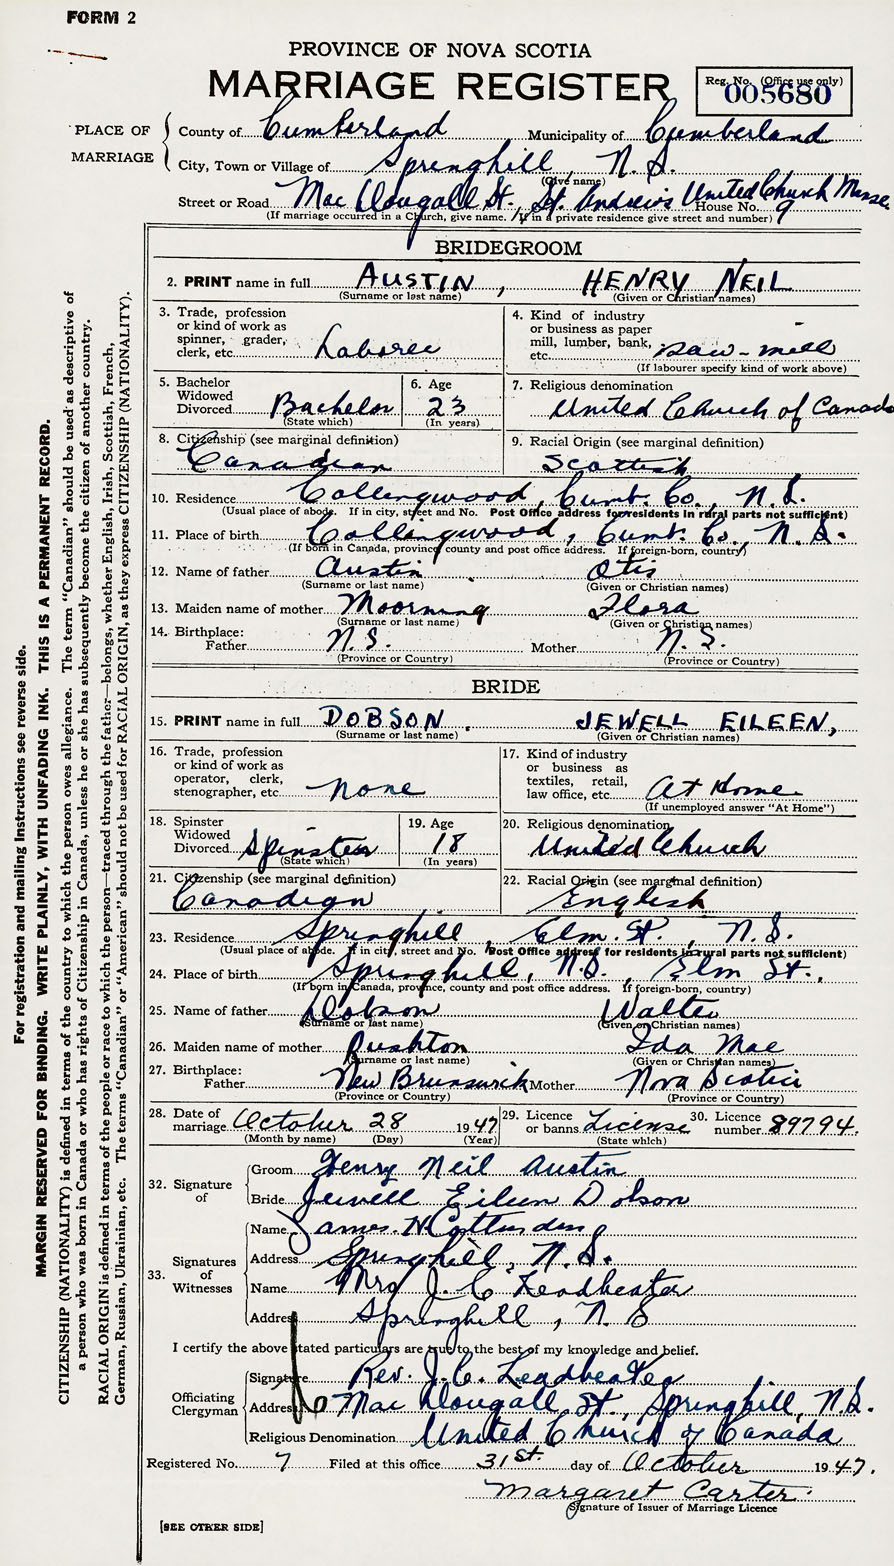 FORM 2
PROVINCE OF NOVA SCOTIA
MARRIAGE REGISTER
Reg. No. (Office use only)
005680
PLACE OF MARRIAGE
County of Cumberland Municipality of Cumberland
City, Town or Village of Springhill, N.S.
(Give name)
Street or Road Mac Dougall St., St. Andrew's United Church Manse House No. 9
(If marriage occurred in a Church, give name. If in a private residence give street and number)
BRIDEGROOM
2. PRINT name in full AUSTIN, HENRY NEIL
(Surname or last name) (Given or Christian names)
3. Trade, profession or kind of work as spinner, grader, clerk, etc. Laborer
4. Kind of industry or business as paper mill, lumber, bank, etc. Saw-mill
(If labourer specify kind of work above)
5. Bachelor Widowed Divorced Bachelor
(State which)
6. Age 23
(In years)
7. Religious denomination
United Church of Canada
8. Citizenship (see marginal definition)
Canadian
9. Racial Origin (see marginal definition)
Scottish
10. Residence Collingwood, Cumb. Co., N.S.
(Usual place of abode. If in city, street and No. Post Office address for residents in rural parts not sufficient)
11. Place of birth Collingwood, Cumb. Co., N.S.
(If born in Canada, province, county and post office address. If foreign-born, country)
12. Name of father Austin Otis
(Surname or last name) (Given or Christian names)
13. Maiden name of mother Flora
(Surname or last name) (Given or Christian names)
14. Birthplace:
Father N.S. Mother N.S.
(Province or Country) (Province or Country)
BRIDE
15. PRINT name in full DOBSON, JEWELL EILEEN,
(Surname or last name) (Given or Christian names)
16. Trade, profession or kind of work as operator, clerk, stenographer, etc. None
17. Kind of industry or business as textiles, retail, law office, etc. At Home
(If unemployed answer "At Home")
18. Spinster Widowed Divorced Spinster
(State which)
19. Age 18
(In years)
20. Religious denomination
United Church
21. Citizenship (see marginal definition)
Canadian
22. Racial Origin (see marginal definition)
English
23. Residence Springhill, Elm St., N.S.
(Usual place of abode. If in city, street and No. Post Office address for residents in rural parts not sufficient)
24. Place of birth Springhill, N.S., Elm St.,
(If born in Canada, province, county and post office address. If foreign-born, country)
25. Name of father Dobson Walter
(Surname or last name) (Given or Christian names)
26. Maiden name of mother Rushton Ida Mae
(Surname or last name) (Given or Christian names)
27. Birthplace:
Father New Brunswick Mother Nova Scotia
(Province or Country) (Province or Country)
28. Date of marriage October 28 1947
(Month by name) (Day) (Year)
29. Licence or banns License
(State which)
30. Licence number 89794.
32. Signature of
Groom Henry Neil Austin
Bride Jewell Eileen Dobson
33. Signatures of Witnesses
Name James N.
Address Springhill, N.S.
Name Mrs J. C. Leadbeater
Address Springhill, N.S
I certify the above stated particulars are true to the best of my knowledge and belief.
Officiating Clergyman
Signature Rev. J. C. Leadbeater
Address Mac Dougall St., Springhill, N.S.
Religious Denomination United Church of Canada
Registered No. 7 Filed at this office 31st. day of October 1947.
Margaret Carter
Signature of Issuer of Marriage Licence
[SEE OTHER SIDE]
For registration and mailing Instructions see reverse side.
MARGIN RESERVED FOR BINDING. WRITE PLAINLY, WITH UNFADING INK. THIS IS A PERMANENT RECORD.
CITIZENSHIP (NATIONALITY) is defined in terms of the country to which the person owes allegiance. The term "Canadian" should be used as descriptive of
a person who was born in Canada or who has rights of Citizenship in Canada, unless he or she has subsequently become the citizen of another country.
RACIAL ORIGIN is defined in terms of the people or race to which the person—traced through the father—belongs, whether English, Irish, Scottish, French,
German, Russian, Ukrainian, etc. The terms "Canadian" or "American" should not be used for RACIAL ORIGIN, as they express CITIZENSHIP (NATIONALITY).